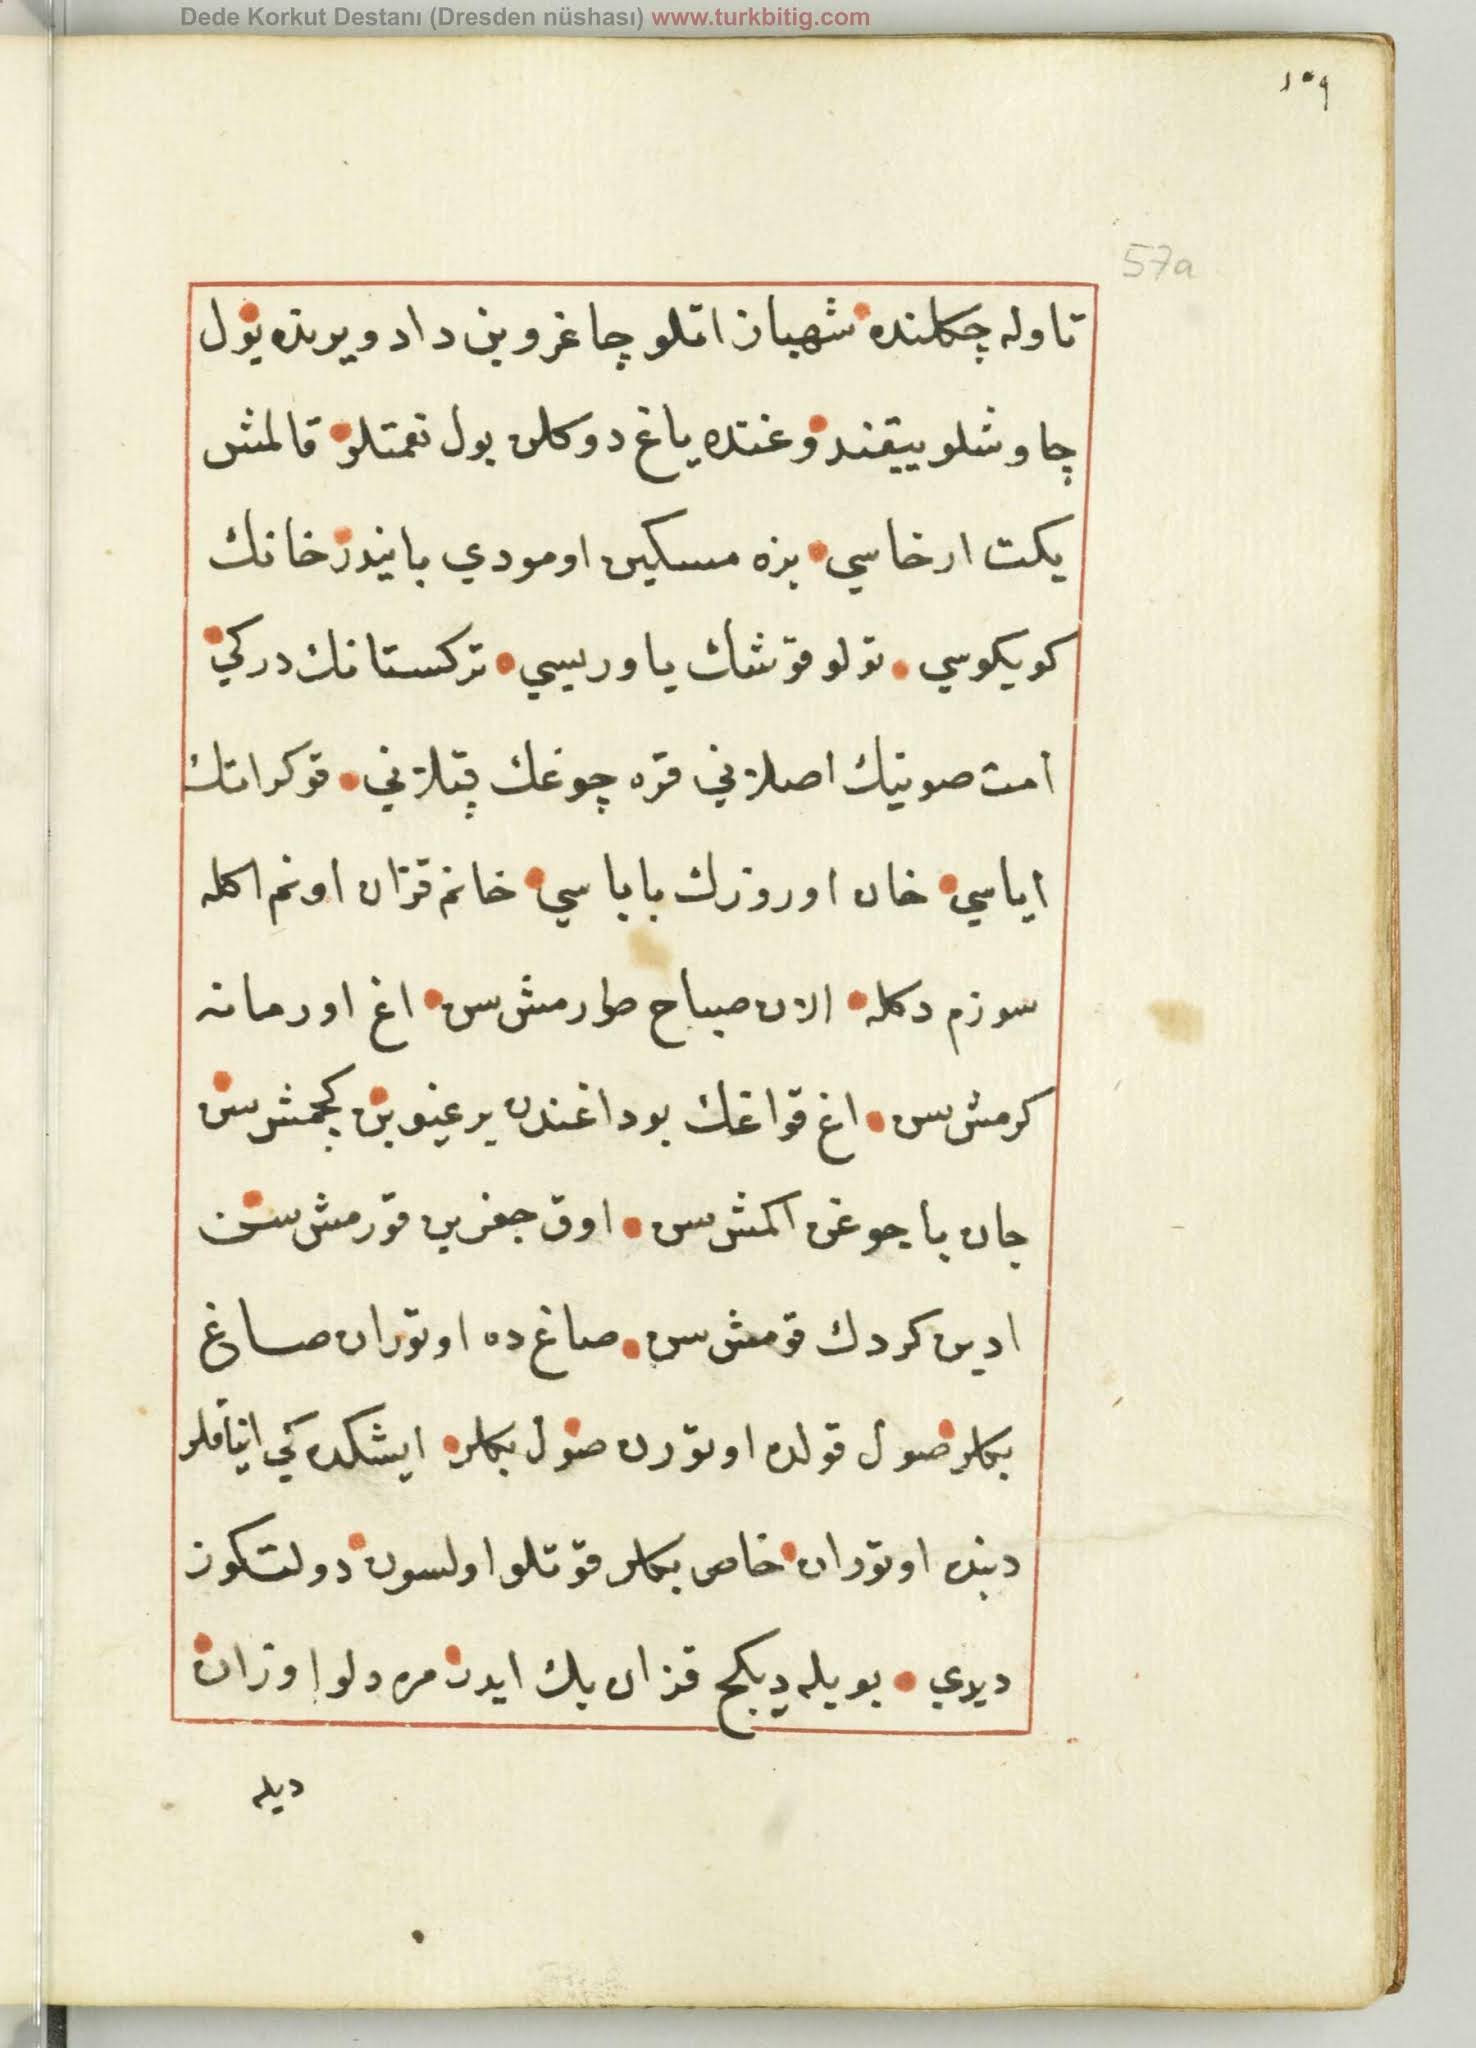 Dede Korkut Destanı (Dresden nüshası) www.turkbitig.com
١٠٩
57a
تاوله چكلنده شهباز اتلو چاغروبن داد ويرنده يول
چاوشلو ييقنده وغنده ياغ دوكلن بول نعمتلو قالمش
يكت ارخاسي بزه مسكين اومودي بايندر خانك
كويكوسي تولو قوشك ياوريسي تركستانك دركي
امت صوينك اصلاني قره چوغك قپلاني قوكر اتك
اياسي خان اوروزك باباسي خانم قزان اونم اكله
سوزم دكله الان صباح طورمش سن اغ اورمانه
كرمش سن اغ قواغك بوداغندن يرغيوبن كچمش سن
جان ياجوغن اكمش سن اوق جغزين قورمش سن
ادين كردك قومش سن صاغ ده اوتوران صاغ
بكلر صول قولده اوتورن صول بكلر ايشكده كي ايناقلر
دبنده اوتوران خاص بكلر قوتلو اولسون دولتكوز
ديدي بويله ديكج قزان بك ايدر مره دلو اوزان
ديله